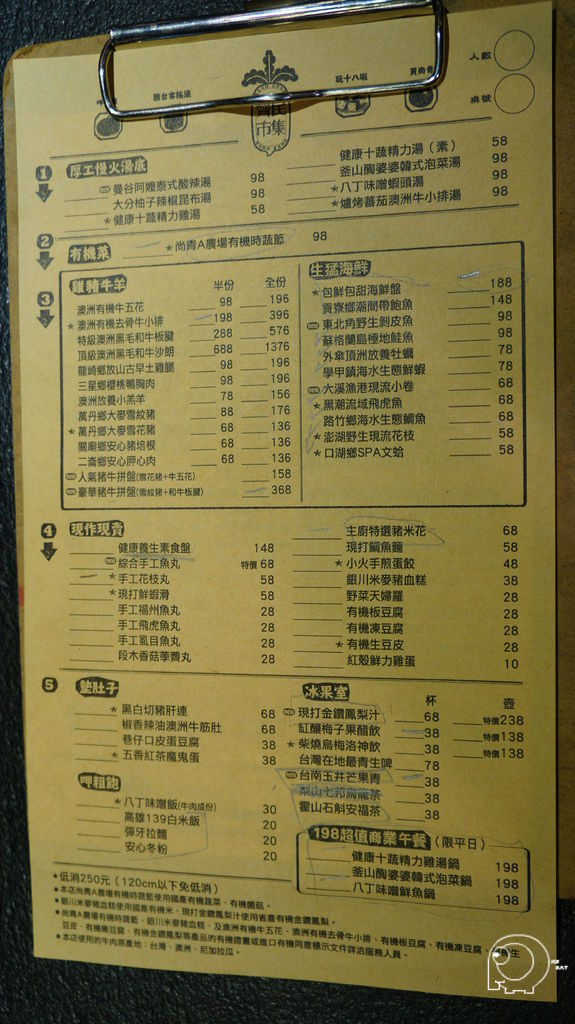 人數
桌號
融台客搖滾
玩十八啦
買尚青
齊民市集
1 厚工慢火湯底
NEW 曼谷阿嬤泰式酸辣湯 98
大分柚子辣椒昆布湯 98
★健康十蔬精力雞湯 58
健康十蔬精力湯（素） 58
釜山醄婆婆韓式泡菜湯 98
★八丁味噌蝦頭湯 98
★爐烤蕃茄澳洲牛小排湯 98
2 有機菜
★尚青A農場有機時蔬籃 98
3 雞豬牛羊 半份 全份
澳洲有機牛五花 98 196
★澳洲有機去骨牛小排 198 396
特級澳洲黑毛和牛板腱 288 576
頂級澳洲黑毛和牛沙朗 688 1376
龍崎鄉放山古早土雞腿 98 196
三星鄉櫻桃鴨胸肉 98 196
澳洲放養小羔羊 78 156
萬丹鄉大麥雪紋豬 88 176
★萬丹鄉大麥雪花豬 68 136
關廟鄉安心豬培根 68 136
二崙鄉安心胛心肉 68 136
NEW 人氣豬牛拼盤(雪花豬+牛五花) 158
NEW 豪華豬牛拼盤(雪紋豬+和牛板腱) 368
生猛海鮮
★包鮮包甜海鮮盤 188
貢寮鄉潮間帶鮑魚 148
NEW 東北角野生剝皮魚 98
蘇格蘭島極地鮭魚 98
外傘頂洲放養牡蠣 78
學甲鎮海水生態鮮蝦 78
NEW 大溪漁港現流小卷 68
★黑潮流域飛虎魚 68
路竹鄉海水生態鯛魚 68
★澎湖野生現流花枝 58
★口湖鄉SPA文蛤 58
4 現作現賣
健康養生素食盤 148
NEW 綜合手工魚丸 特價 68
★手工花枝丸 58
★現打鮮蝦滑 58
手工福州魚丸 28
手工飛虎魚丸 28
手工虱目魚丸 28
段木香菇荸薺丸 28
主廚特選豬米花 68
現打鯛魚麵 58
★小火手煎蛋餃 48
銀川米麥豬血糕 38
野菜天婦羅 28
有機板豆腐 28
有機凍豆腐 28
★有機生豆皮 28
紅殼鮮力雞蛋 10
5 墊肚子
★黑白切豬肝連 68
椒香辣油澳洲牛筋肚 68
巷仔口皮蛋豆腐 38
★五香紅茶魔鬼蛋 38
呷粗飽
★八丁味噌飯(牛肉成份) 30
高雄139白米飯 20
彈牙拉麵 20
安心冬粉 20
冰果室 杯 壺
NEW 現打金鑽鳳梨汁 68 特價238
缸釀梅子果醋飲 38 特價138
★柴燒烏梅洛神飲 38 特價138
台灣在地最青生啤 78
NEW 台南玉井芒果青 38
梨山七邦烏龍茶 38
霍山石斛安福茶 38
198超值商業午餐（限平日）
健康十蔬精力雞湯鍋 198
釜山醄婆婆韓式泡菜鍋 198
八丁味噌鮮魚鍋 198
•低消250元（120cm以下免低消）
•本店尚青A農場有機時蔬籃使用國產有機蔬菜、有機菌菇。
•銀川米麥豬血糕使用國產有機米，現打金鑽鳳梨汁使用省產有機金鑽鳳梨。
•尚青A農場有機時蔬籃、銀川米麥豬血糕、及澳洲有機牛五花、澳洲有機去骨牛小排、有機板豆腐、有機凍豆腐、有機生
豆皮、有機嫩豆腐、有機金鑽鳳梨等產品的有機證書或進口有機同意標示文件詳洽服務人員。
•本店使用的牛肉原產地：台灣、澳洲、尼加拉瓜。